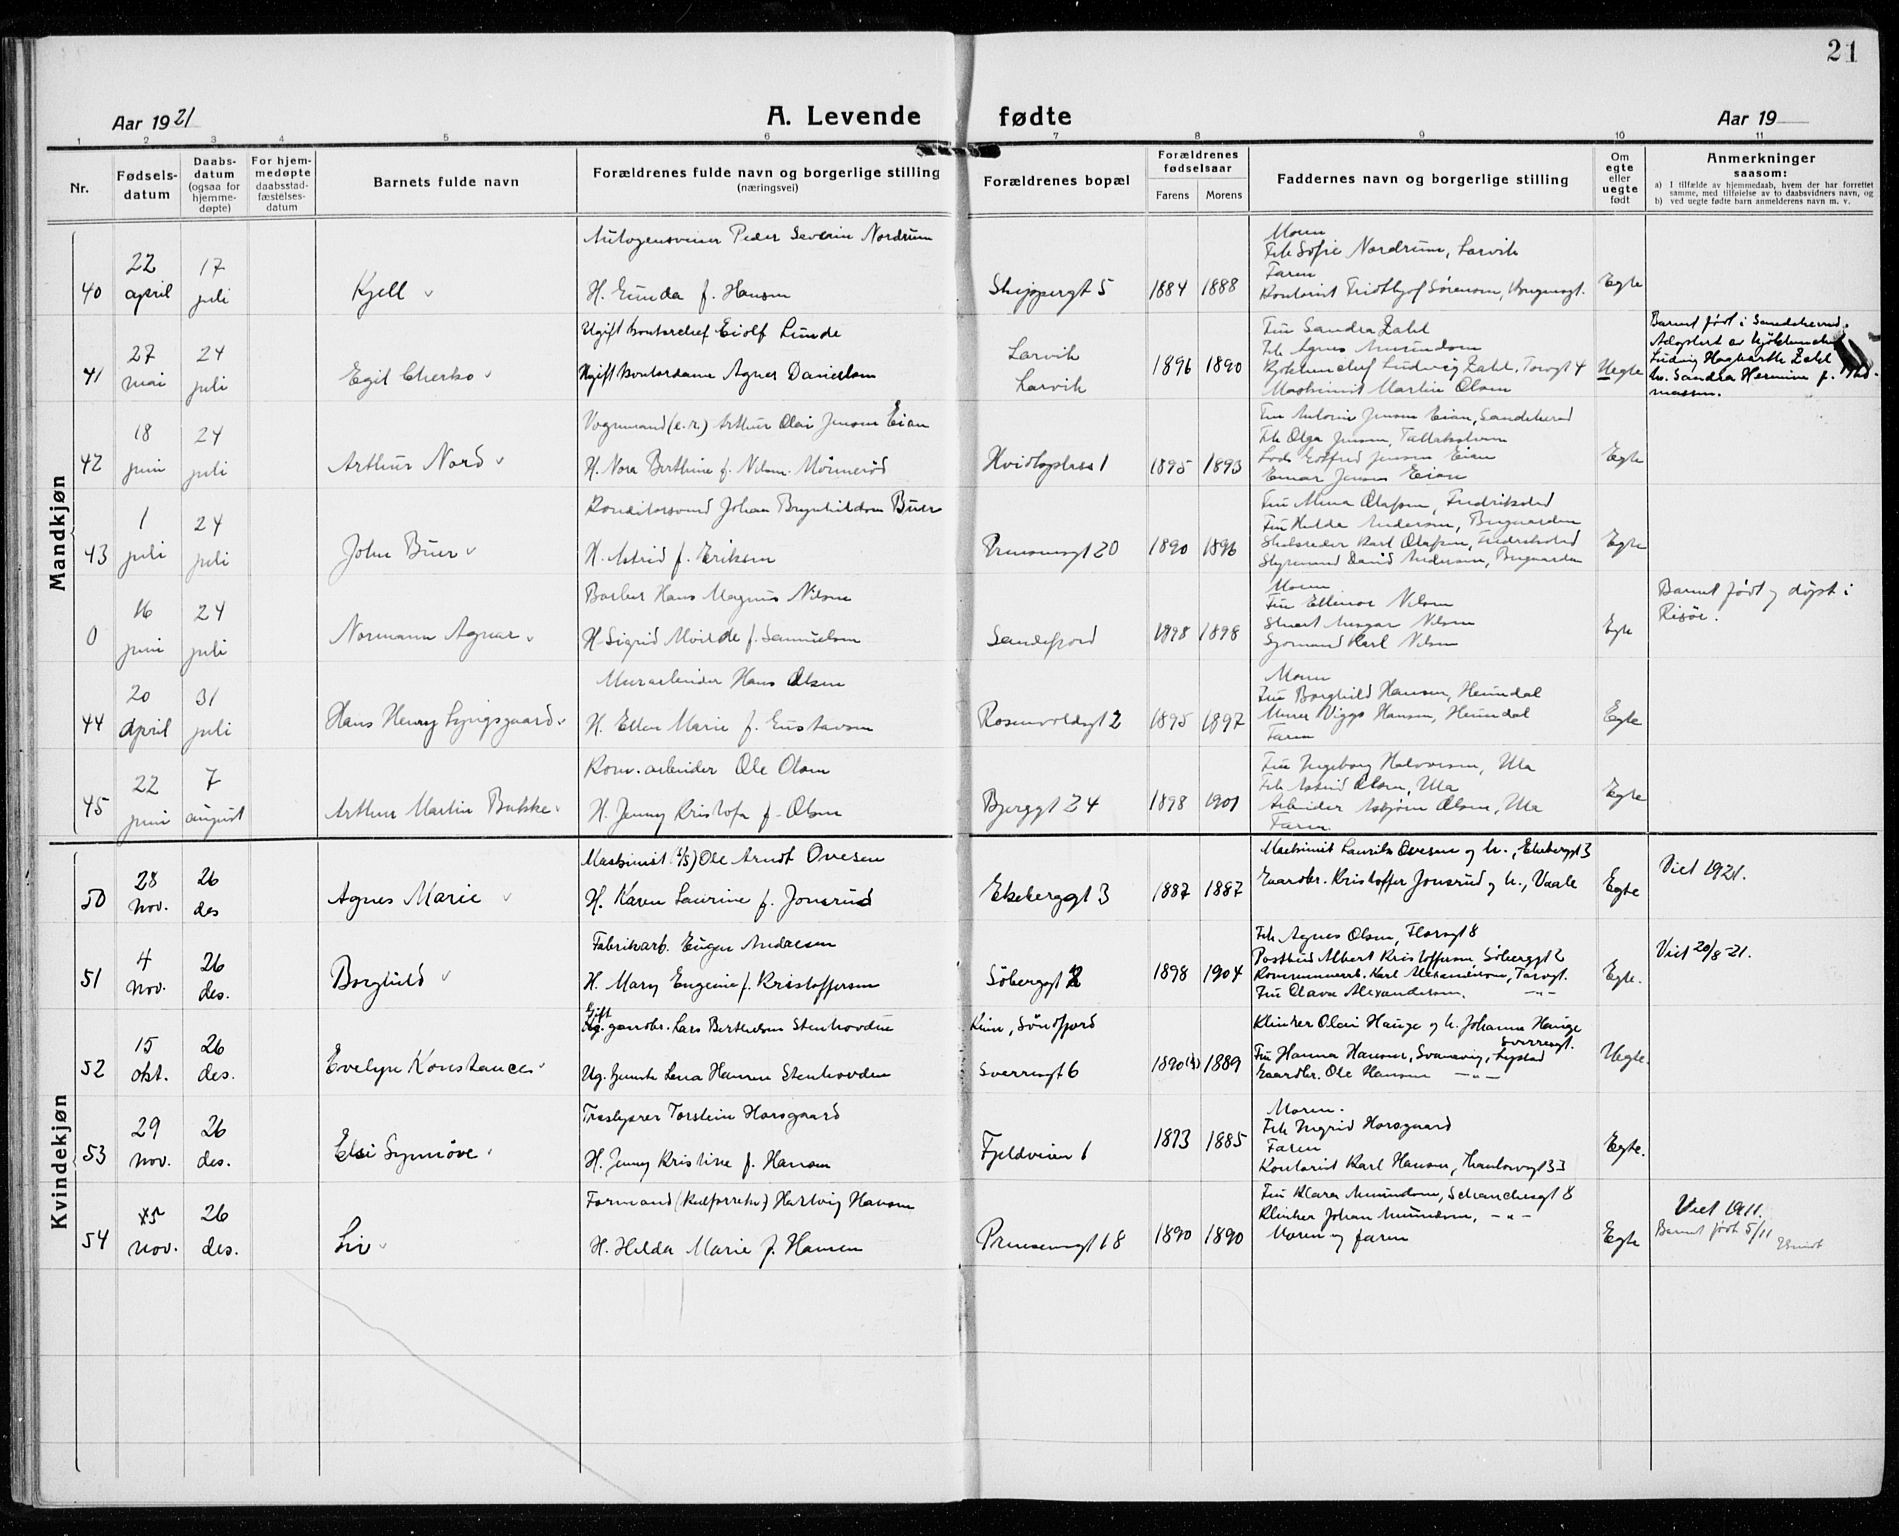 21
Aar 1921
A. Levende fødte
Aar 19
1 2 3 4 5 6 7 8 9 10 11
Nr.
Fødsels-
datum
Daabs-
datum
(ogsaa for
hjemme-
døpte)
For hjem-
medøpte
daabsstad-
fæstelses-
datum
Barnets fulde navn
Forældrenes fulde navn og borgerlige stilling
(næringsvei)
Forældrenes bopæl
Forældrenes
fødselsaar
Farens Morens
Faddernes navn og borgerlige stilling
Om
egte
eller
uegte
født
Anmerkninger
saasom:
a) I tilfælde av hjemmedaab, hvem der har forrettet
samme, med tilføielse av to daabsvidners navn, og
b) ved uegte fødte barn anmelderens navn m. v.
Mandkjøn
40
22 april
17 juli
Kjell
Peder Severin Nordrum
H. Gunda f. Hansen
Skippergt 5
1884 1888
Moren
Frk Sofie Nordrum, Larvik
Faren
Kontorist Fridthjof Sørensen,
Egte
41
27 mai
24 juli
Egil
Ugift kontorchef Eiolf Lunde
Ugift kontordame Agnes Danielsen
Larvik
Larvik
1896 1890
Fru Sandra Zahl
Frk Agnes Amundsen
Ludvig Zahl, Torvgt 4
Maskinist Martin Olsen
Uegte
Barnet født i Sandeherred.
Adoptert av
Ludvig Zahl
h. Sandra Hermine f. Tho-
massen.
42
18 juni
24 juli
Arthur Nord
Vognmand Arthur Olai Jensen Eian
H. Nora Berthine f. Nilsen
1895 1893
Fru Jensen Eian, Sandeherred
Frk Olga Jensen,
Jensen Eian
Einar Jensen Eian
Egte
43
1 juli
24 juli
John Buer
Konditorsvend Johan Brynhildsen Buer
H. Astrid f. Eriksen
Prinsensgt 20
1890 1896
Fru Mina Olafsen, Fredrikstad
Fru Hilda Andersen,
Skibsreder Karl Olafsen, Fredrikstad
Styrmand David Andersen,
Egte
0
16 juni
24 juli
Normann Agnar
Barber Hans Magnus Nilsen
H. Sigrid f. Samuelsen
Sandefjord
1898 1898
Moren
Fru Ellinor Nilsen
Stuert Ansgar Nilsen
Sjømand Karl Nilsen
Egte
Barnet født og døpt i
Risør.
44
20 april
31 juli
Hans Henry Lyngsgaard
Murarbeider Hans Olsen
H. Ellen Marie f. Gustavsen
Rosenvoldsgt 2
1895 1897
Moren
Fru Borghild Hansen, Heimdal
Murer Viggo Hansen, Heimdal
Faren
Egte
45
22 juni
7 august
Arthur Martin Bakke
Kom. arbeider Ole Olsen
H. Jenny Kristofa f. Olsen
Bjerggt 24
1898 1901
Fru Ingeborg Halvorsen, Ula
Frk Astrid Olsen, Ula
Arbeider Asbjørn Olsen, Ula
Faren
Egte
Kvindekjøn
50
28 nov.
26 des
Agnes Marie
Maskinist (d/s) Ole Arndt Ovesen
H. Karen Laurine f. Jonsrud
Ekeberggt 3
1887 1887
Maskinist Laurits Ovesen og h., Ekeberggt 3
Gaardbr. Kristoffer Jonsrud og h., Vaale
Egte
Viet 1921.
51
4 nov.
26 des.
Borghild
Fabrikarb. Eugen Andresen
H. Mary Eugenie f. Kristoffersen
Søberggt 2
1898 1904
Frk. Agnes Olsen, Florsgt 8
Postbud Albert Kristoffersen Søberggt 2
Kommunearb. Karl Alexandersen, Torvgt.
Fru Olava Alexandersen. -"-
Egte.
Viet 20/8-21.
52
15 okt.
26 des.
Evelyn Konstance
Gift
gaardbr. Lars Berthelsen Stenhovden
Ug. Lena Hansen Stenhovden
Kinn, Søndfjord
Sverresgt 6
1890(?) 1889
Klinker Olai Hauge og h. Johanna Hauge
Sverresgt.
Fru Hanna Hansen, Svanevig, Lysestad
Gaardbr. Ole Hansen -"-
Uegte.
53
29 nov.
26 des.
Elsi Synnøve
Træskjærer Torstein Horsgaard
H. Jenny Kristine f. Hansen
Fjeldveien 1
1873 1885
Moren.
Frk Ingrid Horsgaard
Faren
Kontorist Karl Hansen, Thaulowsgt 33
Egte.
54
5 nov.
26 des.
Liv
Formand (Kulforretn) Hartvig Hansen
H. Hilda Marie f. Hansen
Prinsensgt 18
1890 1890
Fru Klara Amundsen, Schanchesgt 8
Klinker Johan Amundsen, -"-
Moren og faren
Egte
Viet 1911.
Barnet født 5/11